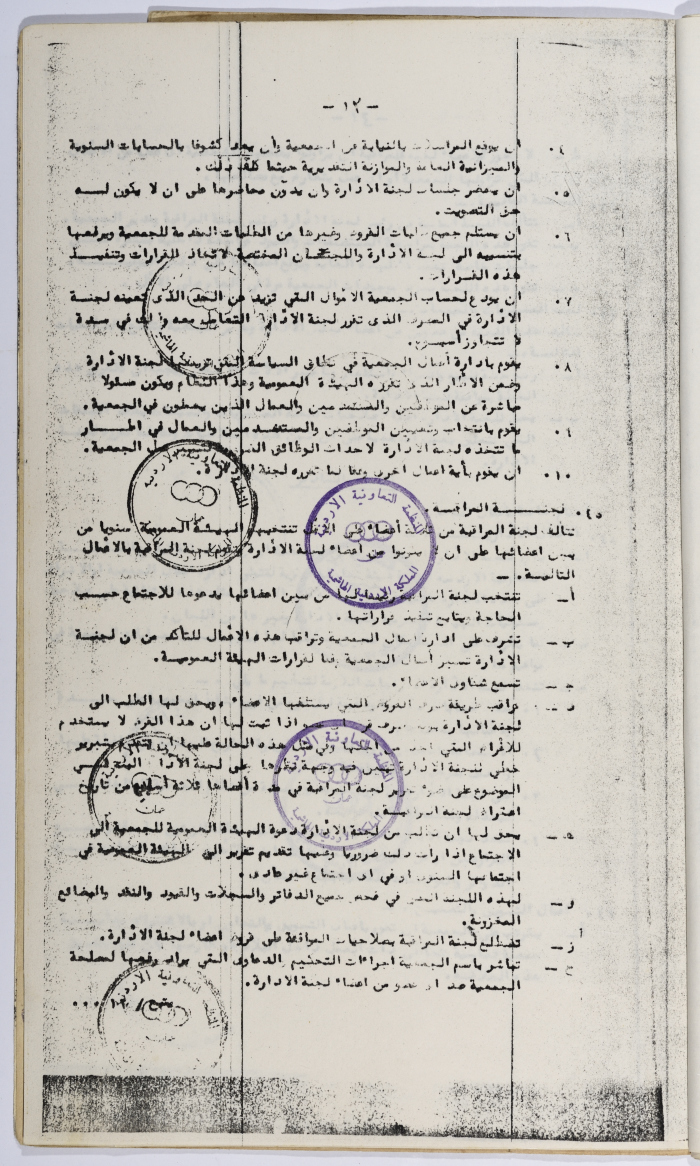 - ١٢ -
٤. ان يوقع المراسلات بالنيابة عن الجمعية وأن يعد كشوفا بالحسابات السنوية
والميزانية العامة والموازنة التقديرية حيثما كلف بذلك.
٥. ان يحضر جلسات لجنة الادارة وان يدون محاضرها على ان لا يكون لسه
حق التصويت.
٦. ان يستلم جميع طلبات القروض وغيرها من الطلبات المقدمة للجمعية ويرفعها
بتنسيبه الى لجنة الادارة واللجان المختصة لاتخاذ القرارات وتنفيذ
هذه القرارات.
٧. ان يودع لحساب الجمعية الاموال التي تزيد عن الحد الذى تعينه لجنة
الادارة في المصرف الذى تقرر لجنة الادارة التعامل معه وذلك في مدة
لا تتجاوز أسبوع.
٨. يقوم بادارة أعمال الجمعية في نطاق السياسة التي ترسمها لجنة الادارة
وضمن الاطار الذى تقرره الهيئة العمومية وهذا النظام ويكون مسئولا
مباشرة عن الموظفين والمستخدمين والعمال الذين يعملون في الجمعية.
٩. يقوم بانتخاب وتعيين الموظفين والمستخدمين والعمال في اطار
ما تتخذه لجنة الادارة لاحداث الوظائف الجمعية.
١٠. ان يقوم بأية اعمال اخرى وفقا لما تقرره لجنة الادارة.
٤٥. لجنة المراقبة.
تتألف لجنة المراقبة من ثلاثة أعضاء تنتخبهم الهيئة العمومية سنويا من
بين اعضائها على ان لا يكونوا من أعضاء لجنة الادارة لجنة المراقبة بالاعمال
التالية. -
أ - تنتخب لجنة المراقبة رئيسا لها من بين اعضائها يدعوها للاجتماع حسب
الحاجة ويتابع تنفيذ قراراتها.
ب - تشرف على ادارة اعمال الجمعية وتراقب هذه الاعمال للتأكد من ان لجنة
الادارة تسير أعمال الجمعية وفقا لقرارات الهيئة العمومية.
جـ - تسمع شكاوى الاعضاء.
د - تراقب طريقة صرف القروض التي يستلفها الاعضاء، ويحق لها الطلب الى
لجنة الادارة اذا ثبت لها ان هذا القرض لا يستخدم
للاغراض التي اخذ من اجلها وفي مثل هذه الحالة عليها ان تتقدم بتقرير
خطي للجنة الادارة وجهة نظرها على لجنة الادارة
الموضوع على ضوء تقرير لجنة المراقبة في مدة أقصاها ثلاثة أسابيع من تاريخ
اعتراض لجنة المراقبة.
هـ - يحق لها ان تطلب من لجنة الادارة دعوة الهيئة العمومية للجمعية الى
الاجتماع اذا رأت ذلك ضروريا وعليها تقديم تقرير الى الهيئة العمومية في
اجتماعها السنوى او في اى اجتماع غير عادى.
و - لهذه اللجنة الحق في فحص جميع الدفاتر والسجلات والقيود والنقد والبضائع
المخزونة.
ز - تضطلع لجنة المراقبة بصلاحيات الموافقة على قروض اعضاء لجنة الادارة.
ح - تباشر باسم الجمعية اجراءات التحكيم والدعاوى التي يراد رفعها لمصلحة
الجمعية ضد اى عضو من اعضاء لجنة الادارة.
يتبع / ١٣ ...
المنظمة التعاونية الاردنية
عمان
المملكة الاردنية الهاشمية
المنظمة التعاونية الاردنية
عمان
المملكة الاردنية الهاشمية